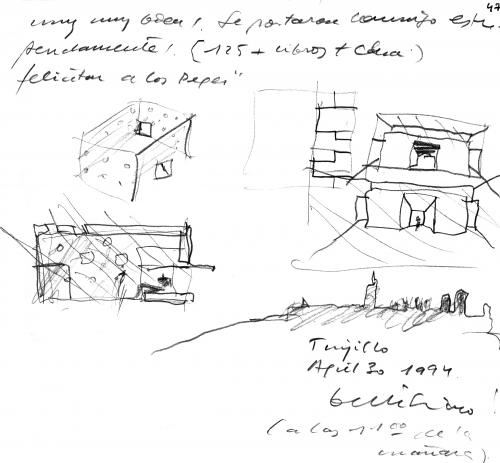 47
muy muy bien! Se portaron conmigo estu-
pendamente! (125 + libros + cena)
felicitar a los Reyes"
Trujillo
April 30 1994.
bellisimo!
(a las 11.00 de la
mañana).